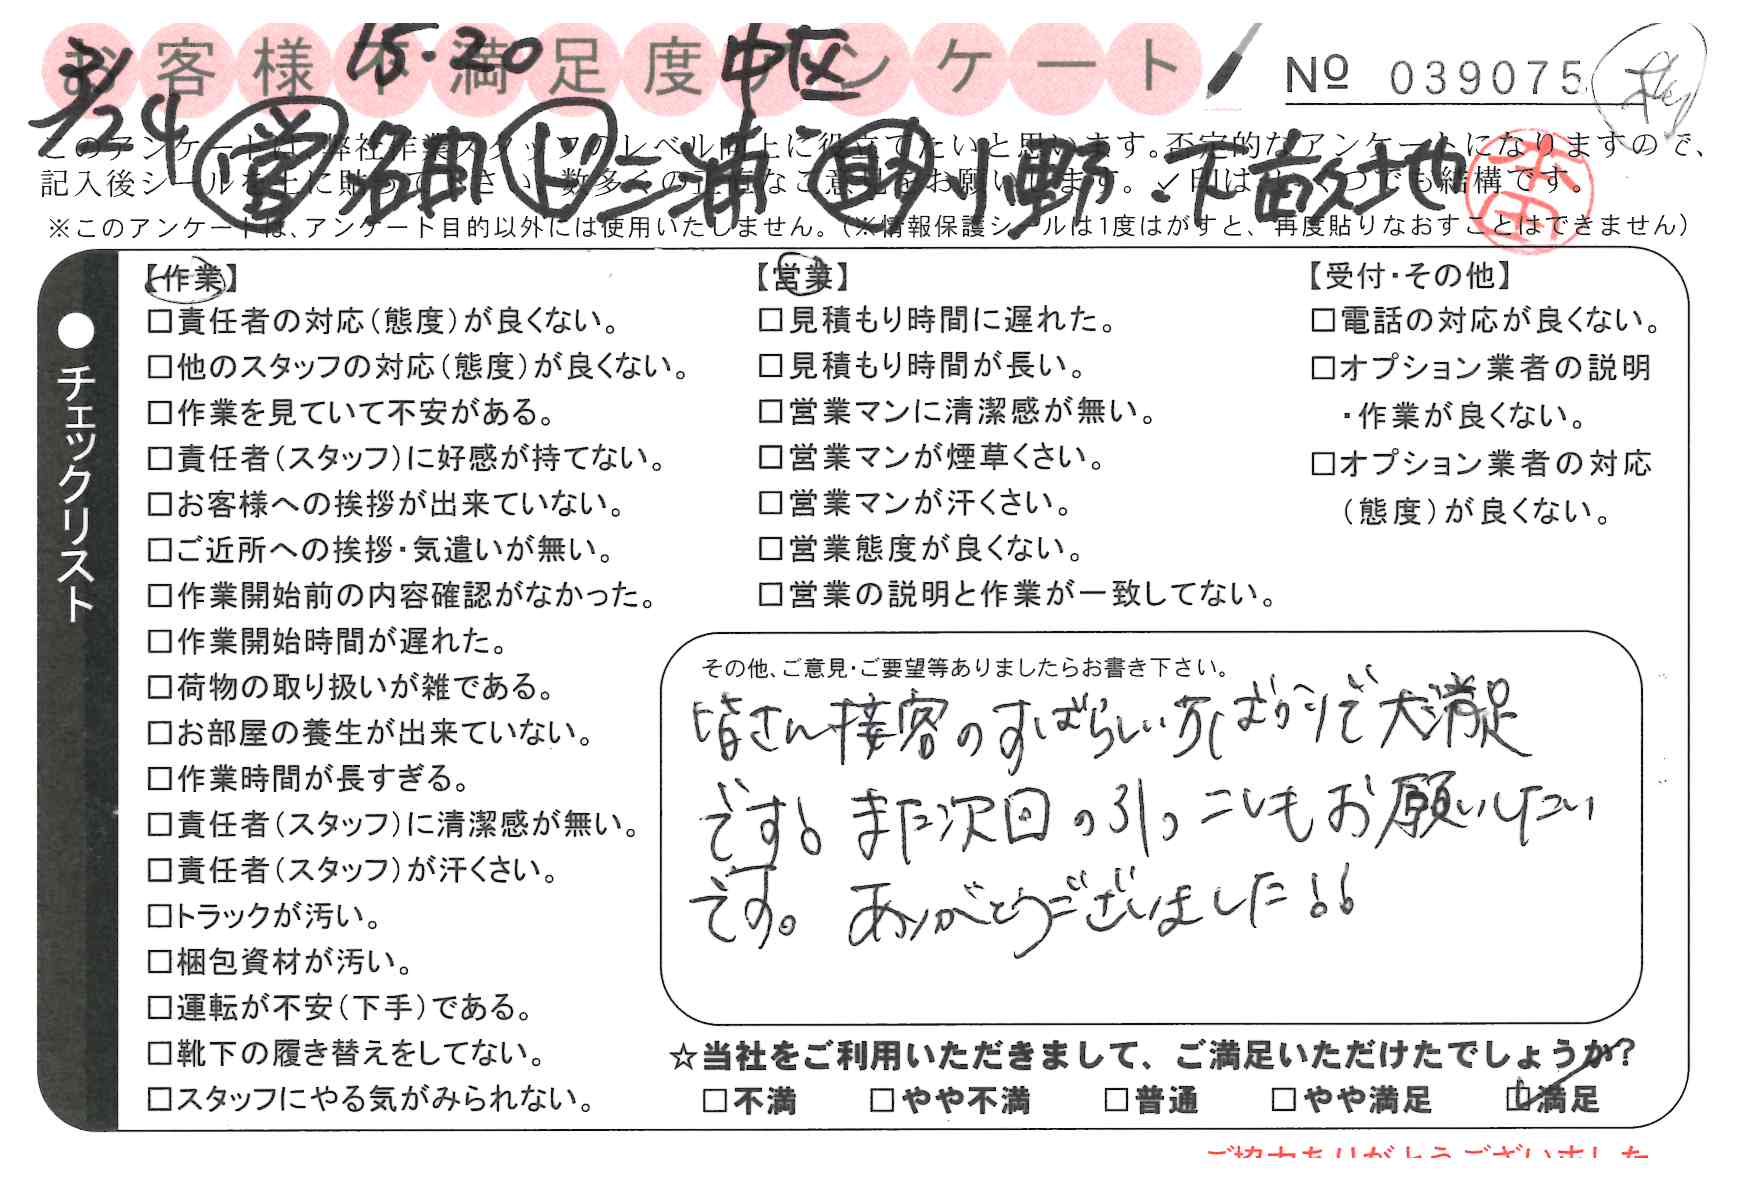 お客様不満足度アンケート
№ 039075
3/24 15・20 中区
営 名和 ド 三浦 助 小野・下畝地
このアンケートは、弊社作業スタッフのレベル向上に役立てたいと思います。否定的なアンケートになりますので、
記入後シールを上に貼って下さい。数多くの正直なご意見をお願いします。✓印はいくつでも結構です。
※このアンケートは、アンケート目的以外には使用いたしません。(※情報保護シールは1度はがすと、再度貼りなおすことはできません)
●チェックリスト
【作業】
□責任者の対応(態度)が良くない。
□他のスタッフの対応(態度)が良くない。
□作業を見ていて不安がある。
□責任者(スタッフ)に好感が持てない。
□お客様への挨拶が出来ていない。
□ご近所への挨拶・気遣いが無い。
□作業開始前の内容確認がなかった。
□作業開始時間が遅れた。
□荷物の取り扱いが雑である。
□お部屋の養生が出来ていない。
□作業時間が長すぎる。
□責任者(スタッフ)に清潔感が無い。
□責任者(スタッフ)が汗くさい。
□トラックが汚い。
□梱包資材が汚い。
□運転が不安(下手)である。
□靴下の履き替えをしてない。
□スタッフにやる気がみられない。
【営業】
□見積もり時間に遅れた。
□見積もり時間が長い。
□営業マンに清潔感が無い。
□営業マンが煙草くさい。
□営業マンが汗くさい。
□営業態度が良くない。
□営業の説明と作業が一致してない。
【受付・その他】
□電話の対応が良くない。
□オプション業者の説明
・作業が良くない。
□オプション業者の対応
(態度)が良くない。
その他、ご意見・ご要望等ありましたらお書き下さい。
皆さん接客のすばらしい方ばかりで大満足
です! また次回の引っこしもお願いしたい
です。ありがとうございました!!
☆当社をご利用いただきまして、ご満足いただけたでしょうか?
□不満 □やや不満 □普通 □やや満足 ☑満足
ご協力ありがとうございました